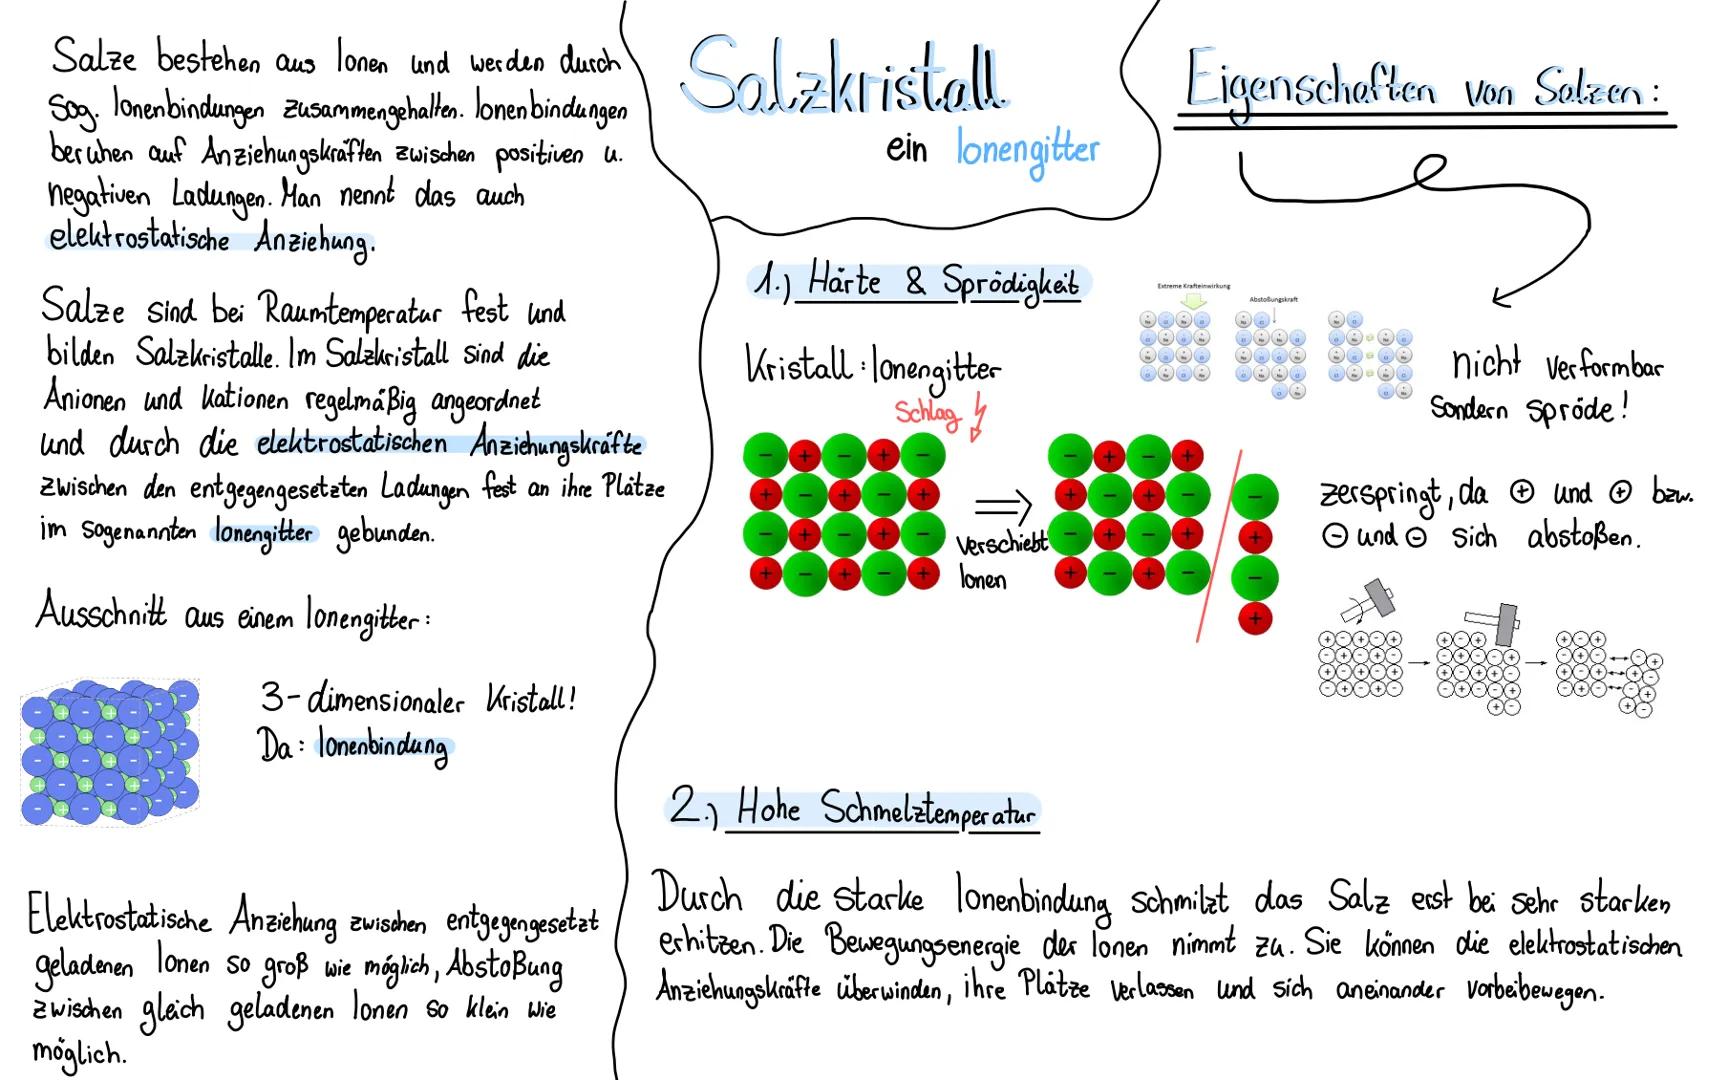 Salze bestehen aus Ionen und werden durch
sog. Ionenbindungen zusammengehalten. Ionenbindungen
beruhen auf Anziehungskräften zwischen positiven u.
negativen Ladungen. Man nennt das auch
elektrostatische Anziehung.
Salze sind bei Raumtemperatur fest und
bilden Salzkristalle. Im Salzkristall sind die
Anionen und Kationen regelmäßig angeordnet
und durch die elektrostatischen Anziehungskräfte
zwischen den entgegengesetzten Ladungen fest an ihre Plätze
im sogenannten Ionengitter gebunden.
Ausschnitt aus einem Ionengitter:
3-dimensionaler Kristall!
Da: Ionenbindung
Elektrostatische Anziehung zwischen entgegengesetzt
geladenen Ionen so groß wie möglich, Abstoßung
zwischen gleich geladenen Ionen so klein wie
möglich.
Salzkristall
ein Ionengitter
Eigenschaften von Salzen:
1.) Härte & Sprödigkeit
Extreme Krafteinwirkung
Abstoßungskraft
Kristall: Ionengitter
Schlag
verschiebt
Ionen
nicht verformbar
sondern spröde!
zerspringt, da ⊕ und ⊕ bzw.
⊖ und ⊖ sich abstoßen.
2.) Hohe Schmelztemperatur
Durch die starke Ionenbindung schmilzt das Salz erst bei sehr starken
erhitzen. Die Bewegungsenergie der Ionen nimmt zu. Sie können die elektrostatischen
Anziehungskräfte überwinden, ihre Plätze verlassen und sich aneinander vorbeibewegen.